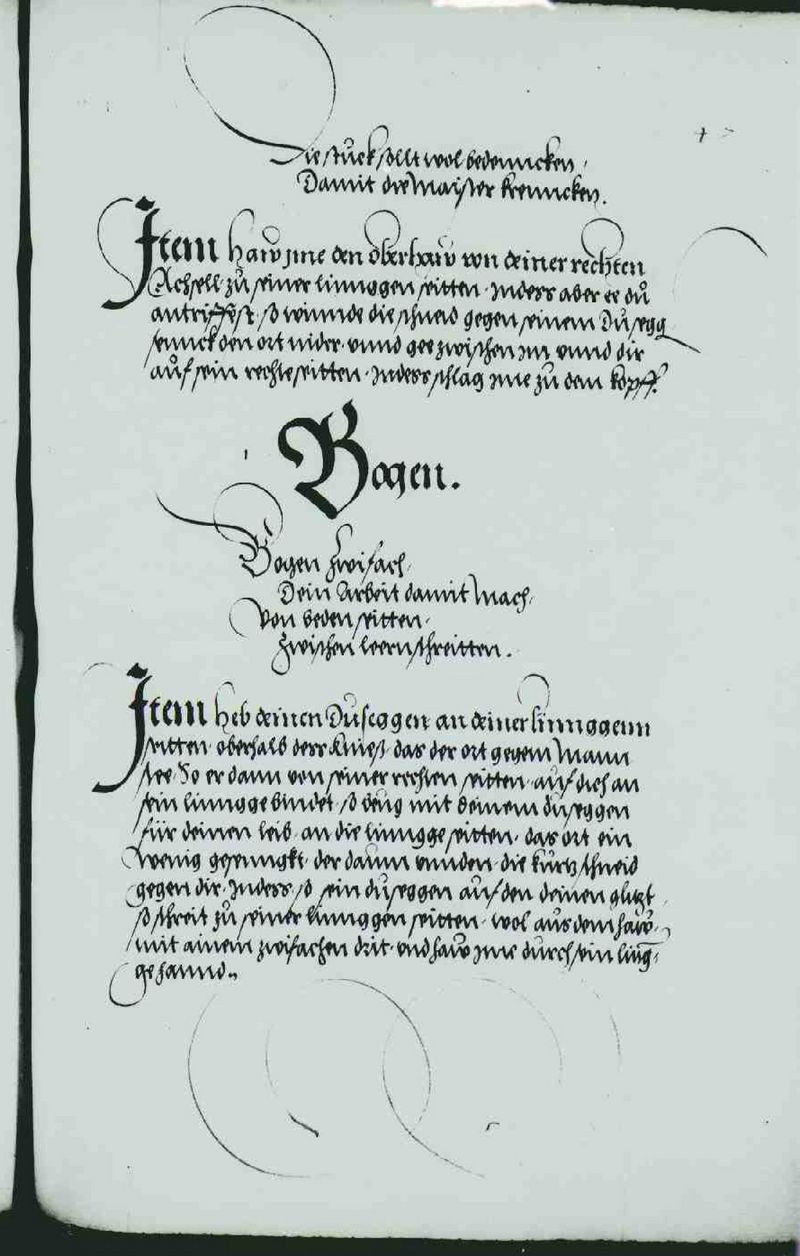 Die stuck sollt wol bedennckhen,
Damit die Maister krennckhen.
Item Haw jme den oberhaw von deiner rechten
Achsell zů seiner linnggen seitten · Indess aber ee dů
antriffest · so winnde die schneid gegen seinem Dusegg
sennck den ort nider · unnd gee zwischen im unnd dir
aůf sein rechte seitten · Indess schlag jme zů dem kopff.
Bogen.
Bogen Zwifach,
Dein Arbeit damit mach,
Von beden seitten,
Zwischen leern schreitten.
Item Heb deinen Duseggen an deiner linnggenn
seitten oberhalb dess knieß · das der ort gegem Mann
stee · So er dann von seiner rechten seitten auf dich an
sein lingge bindet · so beug mit deinem duseggen
für deinen leib · an die lingge seitten · das ort ein
wenig gesennckt · der daum unnden · die kurtz schneid
gegen dir · Indess so sein duseggen auf den deinen glitzt
so schreit zů seiner linnggen seitten · wol aus dem haw
mit ainem zwifachen drit · und haw jme durch sein ling=
ge hannd.